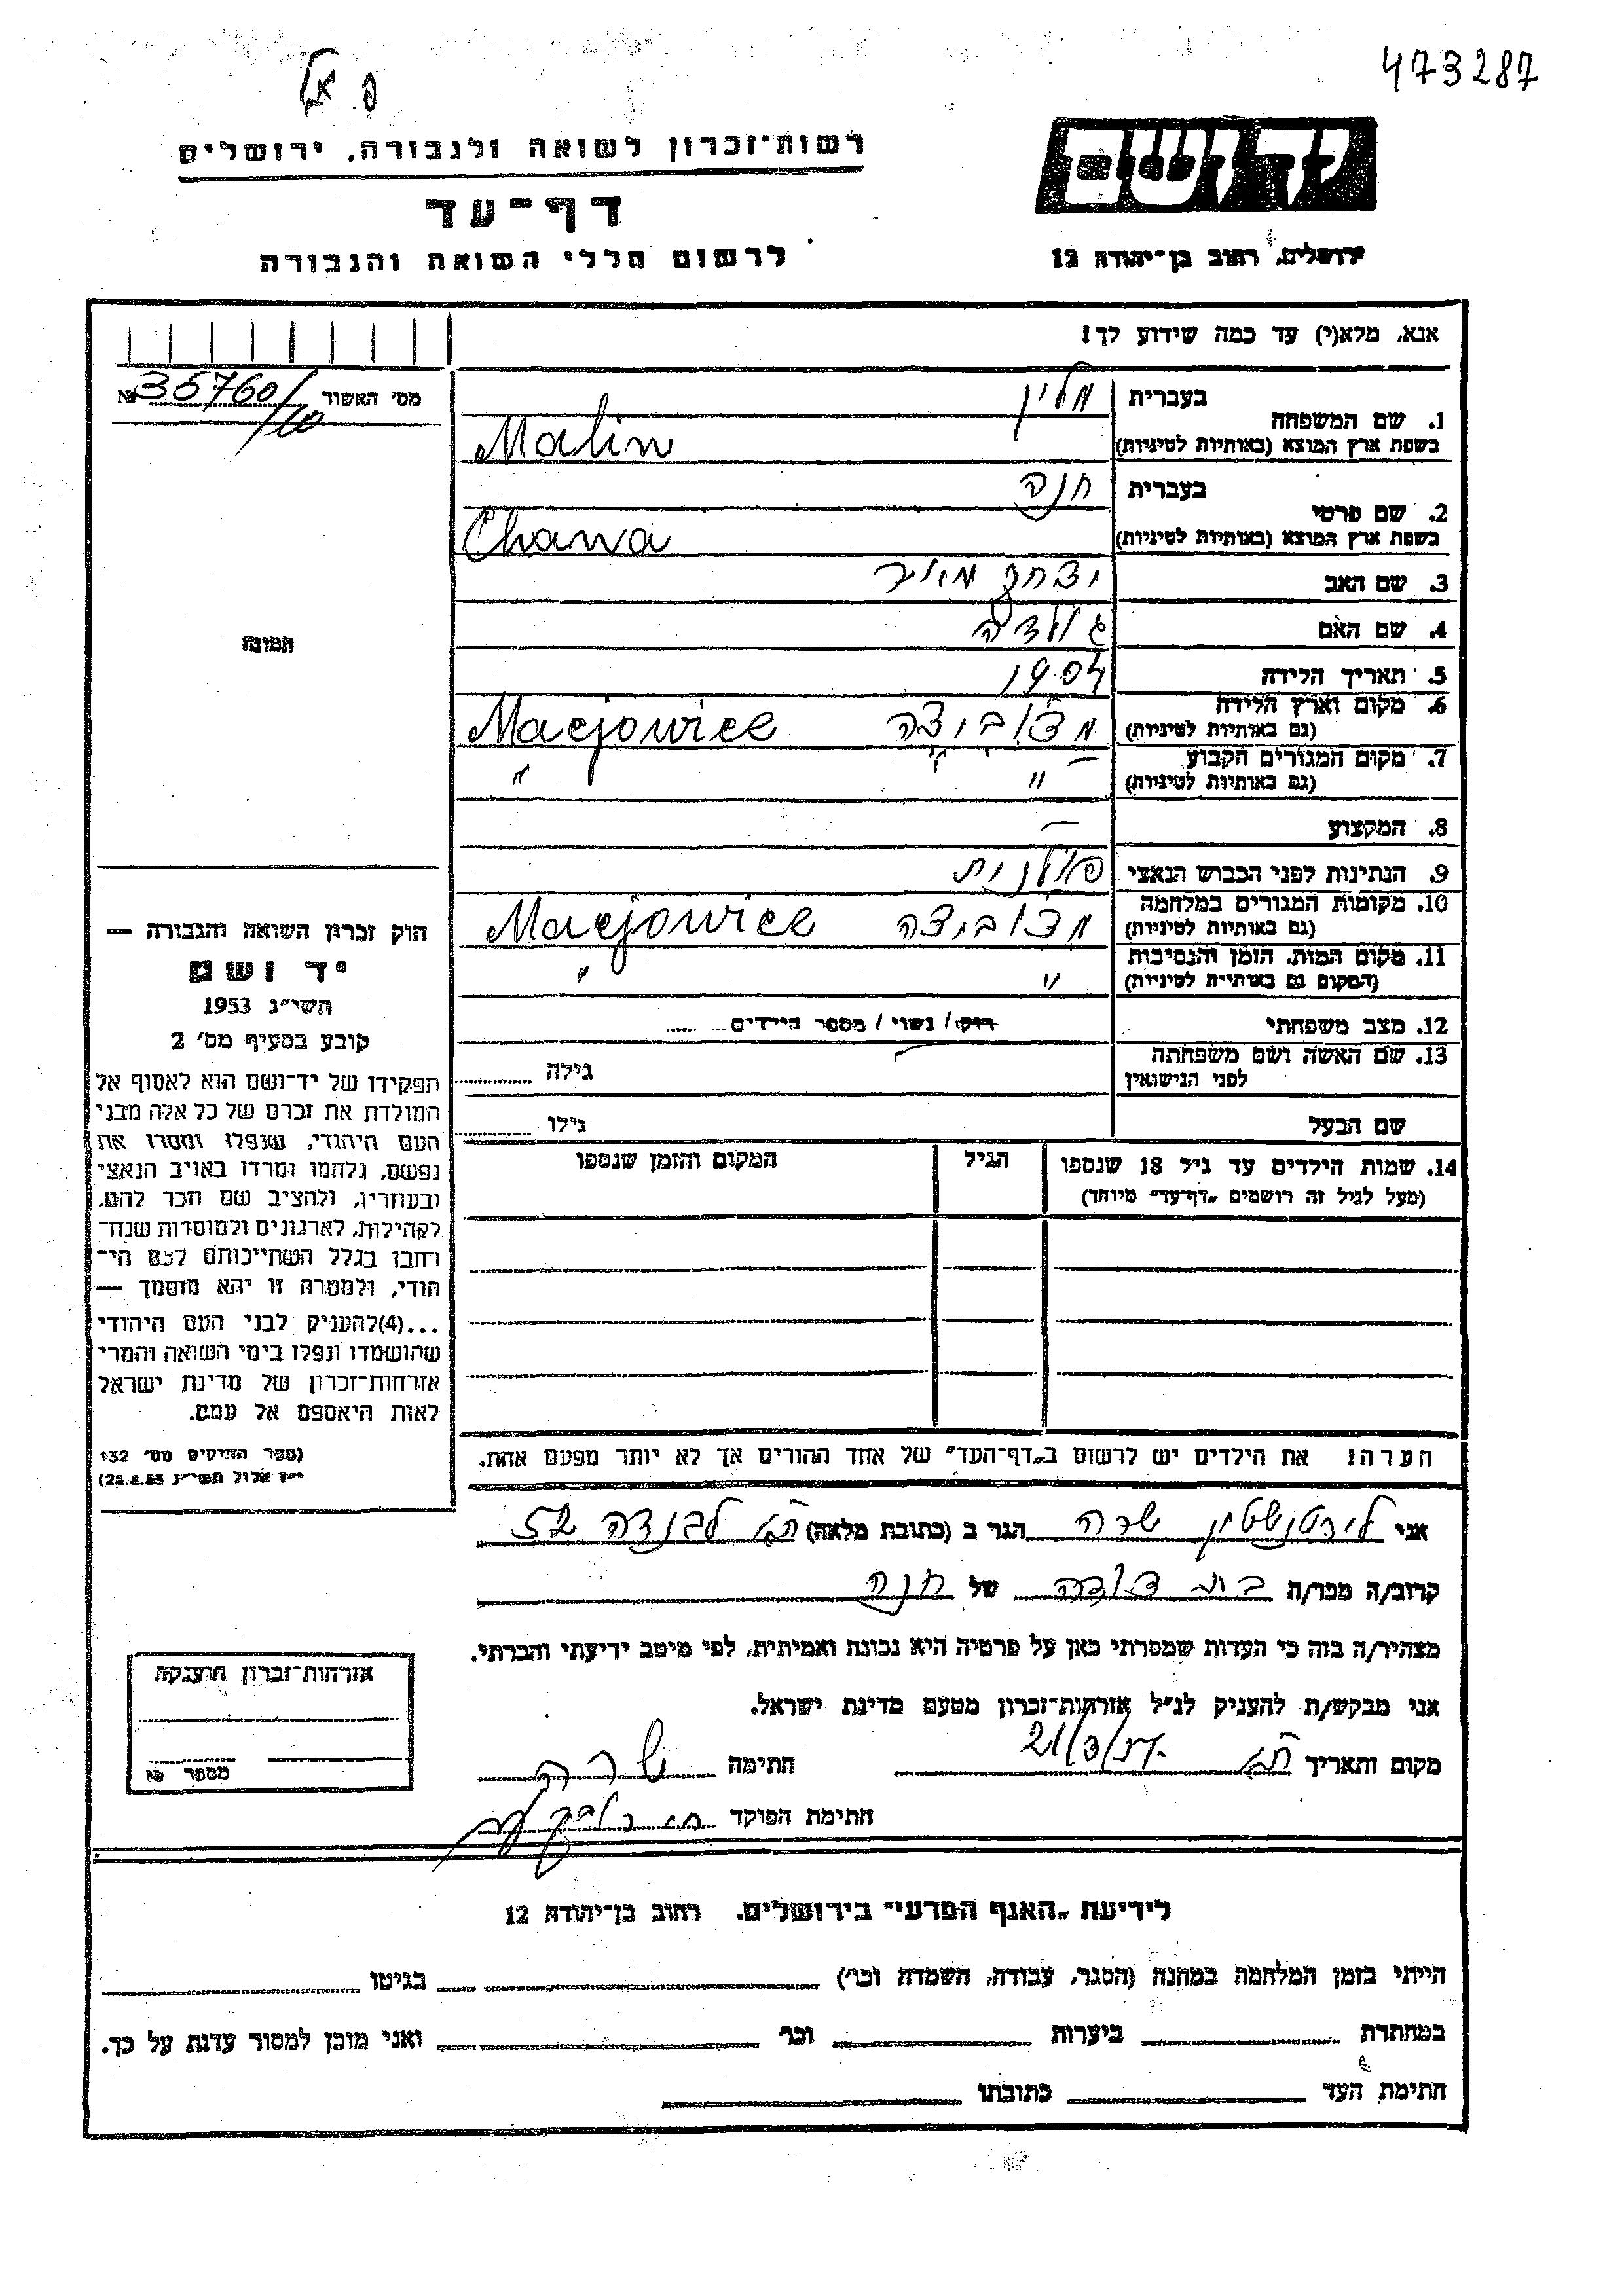 473287
פ. אל
יד ושם
ירושלים, רחוב בן־יהודה 12
רשות־זכרון לשואה ולגבורה, ירושלים
דף־עד
לרשום חללי השואה והגבורה
אנא, מלא(י) עד כמה שידוע לך!
מס' האשור № 35760/10
1. שם המשפחה
בעברית מלין
בשפת ארץ המוצא (באותיות לטיניות) Malin
2. שם פרטי
בעברית חנה
בשפת ארץ המוצא (באותיות לטיניות) Chana
3. שם האב יצחק מאיר
4. שם האם גולדה
5. תאריך הלידה 1904
6. מקום וארץ הלידה
(גם באותיות לטיניות) מצוביצה Maejowice
7. מקום המגורים הקבוע
(גם באותיות לטיניות) " "
8. המקצוע —
9. הנתינות לפני הכבוש הנאצי פולנית
10. מקומות המגורים במלחמה
(גם באותיות לטיניות) מצוביצה Maejowice
11. מקום המות, הזמן והנסיבות
(המקום גם באותיות לטיניות) " "
12. מצב משפחתי רוק / נשוי / מספר הילדים
13. שם האשה ושם משפחתה
לפני הנישואין — גילה
שם הבעל גילו
14. שמות הילדים עד גיל 18 שנספו
(מעל לגיל זה רושמים "דף־עד" מיוחד)
הגיל
המקום והזמן שנספו
הערה: את הילדים יש לרשום ב"דף־העד" של אחד ההורים אך לא יותר מפעם אחת.
תמונה
חוק זכרון השואה והגבורה —
יד ושם
תשי"ג 1953
קובע בסעיף מס' 2
תפקידו של יד־ושם הוא לאסוף אל
המולדת את זכרם של כל אלה מבני
העם היהודי, שנפלו ומסרו את
נפשם, נלחמו ומרדו באויב הנאצי
ובעוזריו, ולהציב שם וזכר להם,
לקהילות, לארגונים ולמוסדות שנח־
רבו בגלל השתייכותם לעם הי־
הודי, ולמטרה זו יהא מוסמך —
...(4)להעניק לבני העם היהודי
שהושמדו ונפלו בימי השואה והמרי
אזרחות־זכרון של מדינת ישראל
לאות היאספם אל עמם.
(ספר החוקים מס' 132
י"ז אלול תשי"ג 28.8.53)
אני ליכטנשטיין שרה הגר ב (כתובת מלאה) ת"א לבנדה 52
קרוב/ה מכר/ה בת דודה של חנה
מצהיר/ה בזה כי העדות שמסרתי כאן על פרטיה היא נכונה ואמיתית, לפי מיטב ידיעתי והכרתי.
אני מבקש/ת להעניק לנ"ל אזרחות־זכרון מטעם מדינת ישראל.
מקום ותאריך ת"א חתימה שרה
חתימת הפוקד
אזרחות־זכרון הוענקה
מספר №
לידיעת "האגף המדעי" בירושלים, רחוב בן־יהודה 12
הייתי בזמן המלחמה במחנה (הסגר, עבודה, השמדה וכו') בגיטו
במחתרת ביערות וכו' ואני מוכן למסור עדות על כך.
חתימת העד כתובתו